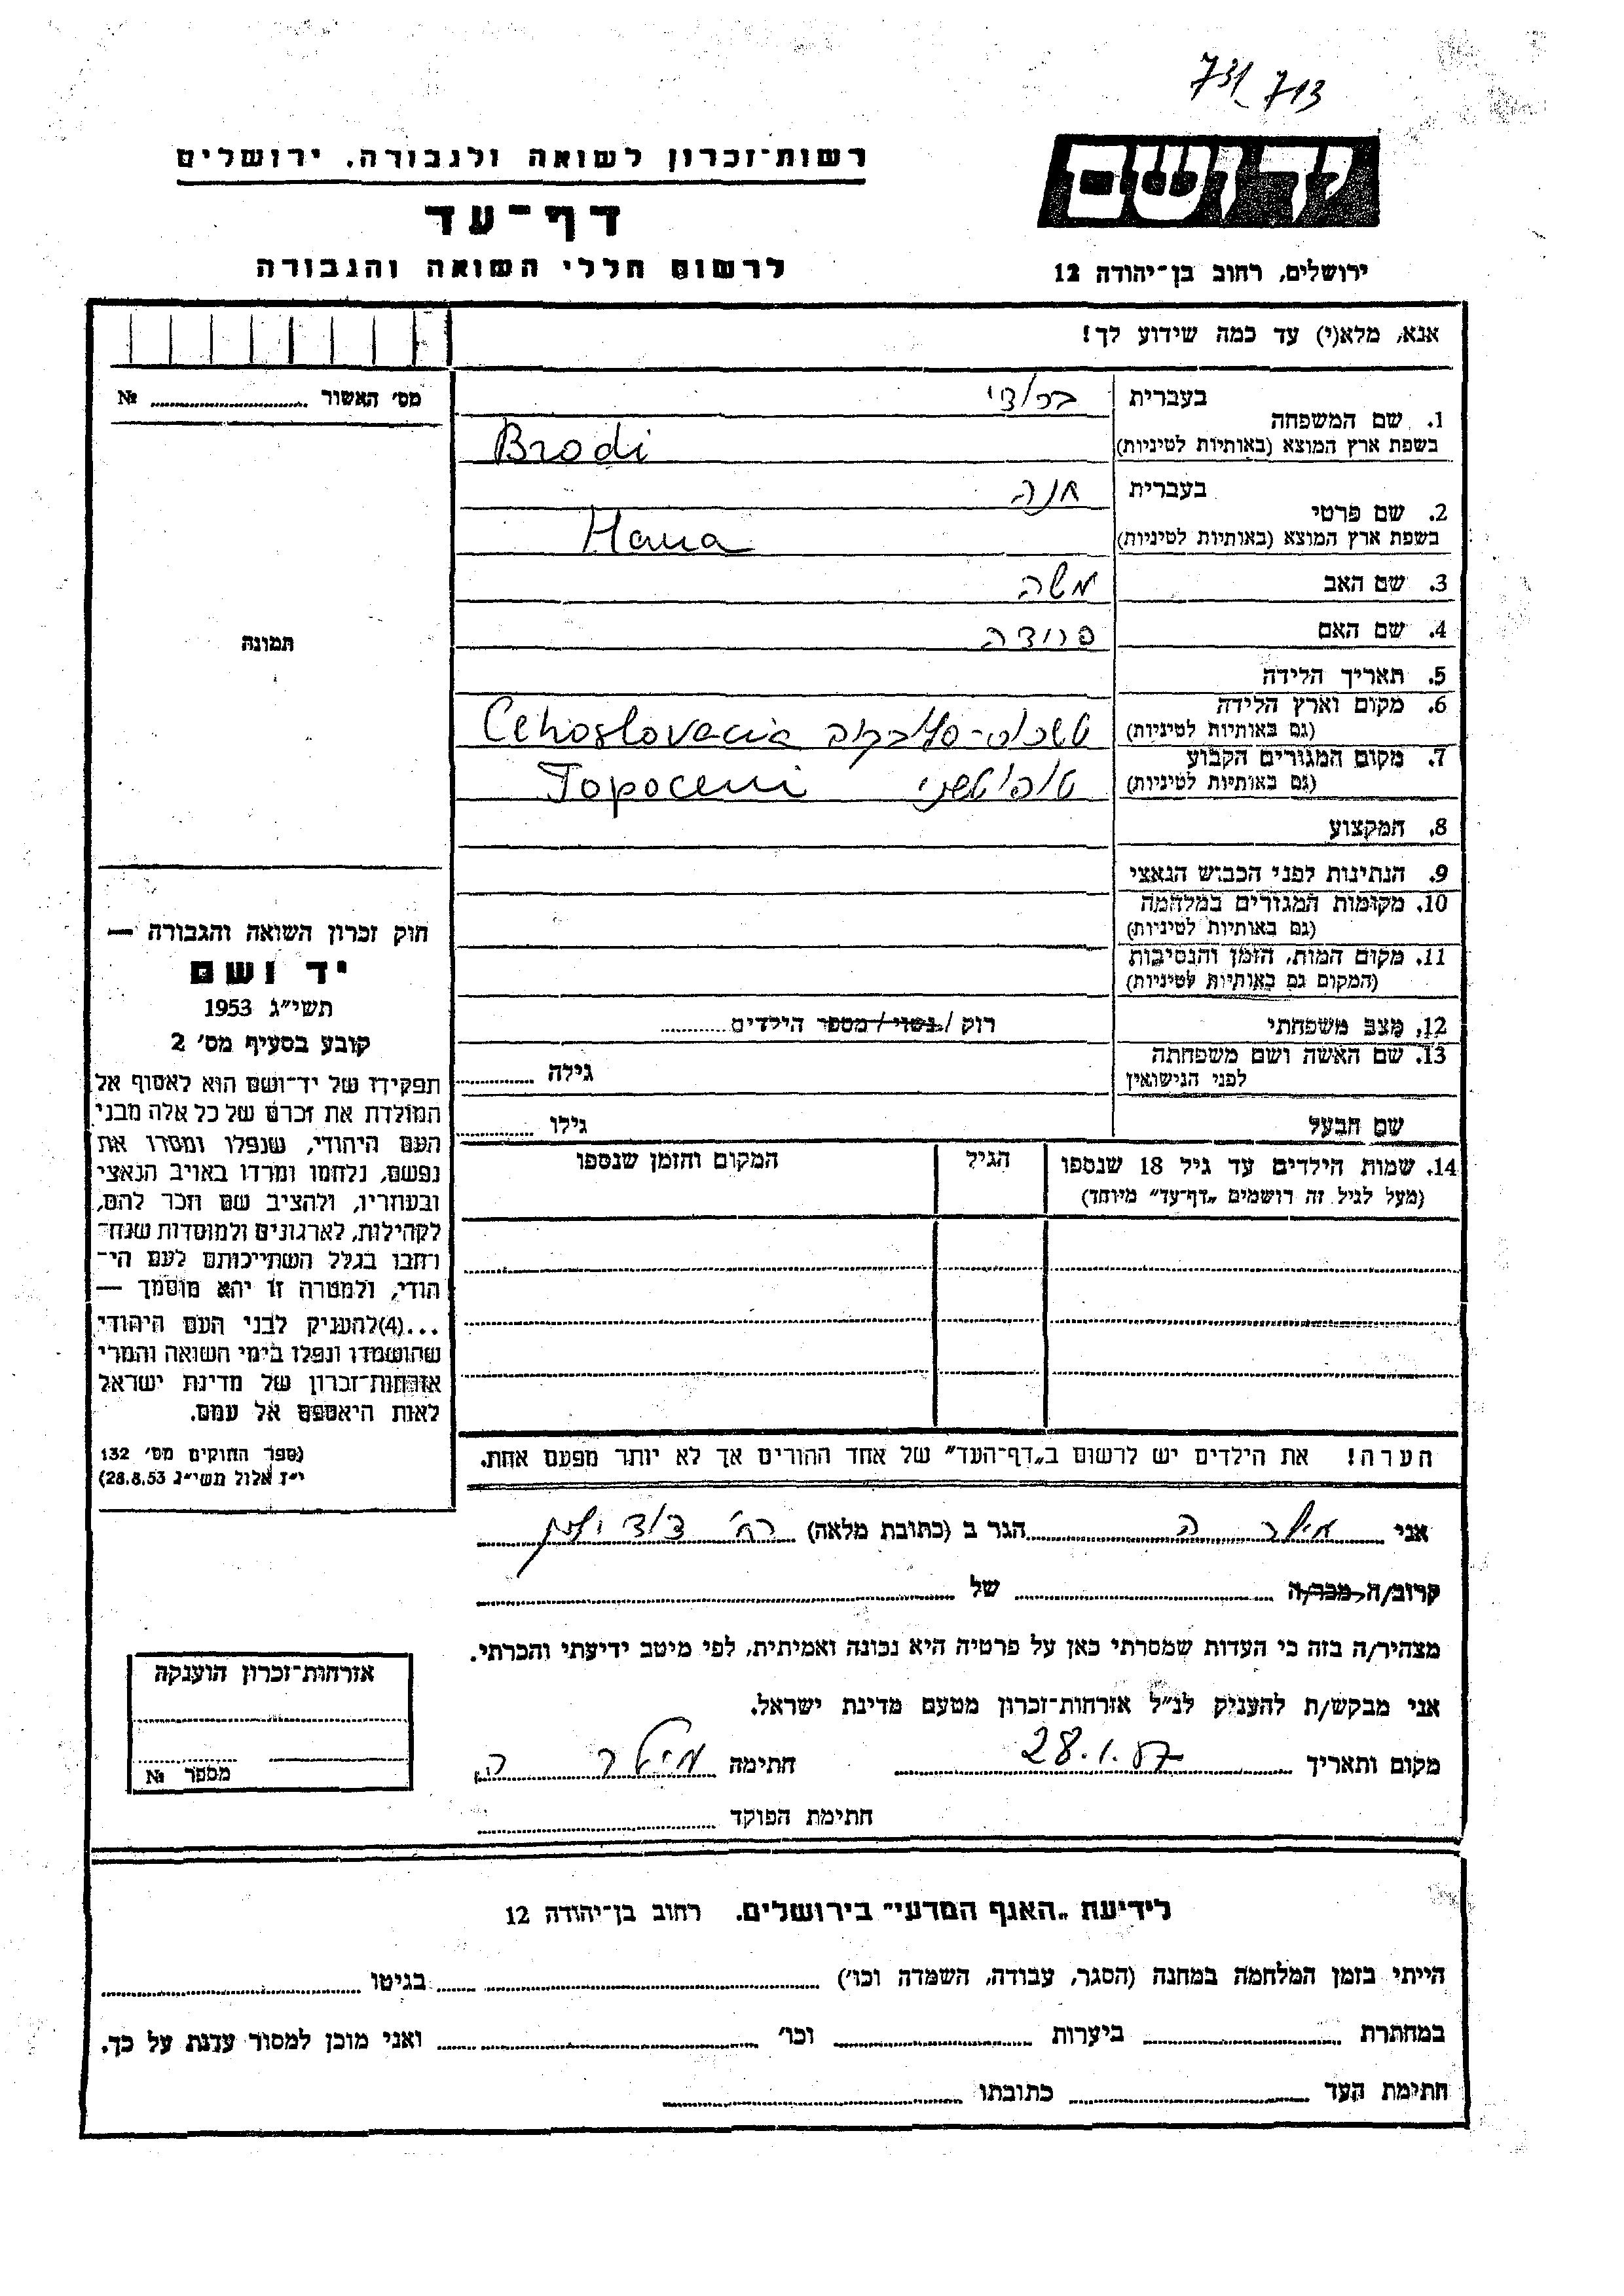 731 713
יד ושם
רשות־זכרון לשואה ולגבורה, ירושלים
דף־עד
לרשום חללי השואה והגבורה
ירושלים, רחוב בן־יהודה 12
אנא, מלא(י) עד כמה שידוע לך!
מס׳ האשור № 
1. שם המשפחה
בעברית ברודי
בשפת ארץ המוצא (באותיות לטיניות) Brodi
2. שם פרטי
בעברית חנה
בשפת ארץ המוצא (באותיות לטיניות) Hana
3. שם האב משה
4. שם האם פרידה
תמונה
5. תאריך הלידה
6. מקום וארץ הלידה
(גם באותיות לטיניות) Cehoslovacia
7. מקום המגורים הקבוע
(גם באותיות לטיניות) טופולטשני Topoceni
8. המקצוע
9. הנתינות לפני הכבוש הנאצי
10. מקומות המגורים במלחמה
(גם באותיות לטיניות)
11. מקום המות, הזמן והנסיבות
(המקום גם באותיות לטיניות)
12. מצב משפחתי רוק / נשוי / מספר הילדים
13. שם האשה ושם משפחתה
לפני הנישואין גילה
שם הבעל גילו
14. שמות הילדים עד גיל 18 שנספו
(מעל לגיל זה רושמים „דף־עד” מיוחד)
הגיל
המקום והזמן שנספו
חוק זכרון השואה והגבורה —
יד ושם
תשי״ג 1953
קובע בסעיף מס׳ 2
תפקידו של יד־ושם הוא לאסוף אל
המולדת את זכרם של כל אלה מבני
העם היהודי, שנפלו ומסרו את
נפשם, נלחמו ומרדו באויב הנאצי
ובעוזריו, ולהציב שם וזכר להם,
לקהילות, לארגונים ולמוסדות שנח־
רחבו בגלל השתייכותם לעם הי־
הודי, ולמטרה זו יהא מוסמך —
...(4)להעניק לבני העם היהודי
שהושמדו ונפלו בימי השואה והמרי
אזרחות־זכרון של מדינת ישראל
לאות היאספם אל עמם.
(ספר החוקים מס׳ 132
י״ז אלול תשי״ג 28.8.53)
הערה! את הילדים יש לרשום ב„דף־העד” של אחד ההורים אך לא יותר מפעם אחת.
אני מילר ה הגר ב (כתובת מלאה) רח׳
קרוב/ה מכר/ה של
מצהיר/ה בזה כי העדות שמסרתי כאן על פרטיה היא נכונה ואמיתית, לפי מיטב ידיעתי והכרתי.
אני מבקש/ת להעניק לנ״ל אזרחות־זכרון מטעם מדינת ישראל.
מקום ותאריך 28.1.87 חתימה מילר ה
חתימת הפוקד
אזרחות־זכרון הוענקה
מספר №
לידיעת „האגף המדעי” בירושלים. רחוב בן־יהודה 12
הייתי בזמן המלחמה במחנה (הסגר, עבודה, השמדה וכו׳) בגיטו
במחתרת ביערות וכו׳ ואני מוכן למסור עדות על כך.
חתימת העד כתובתו